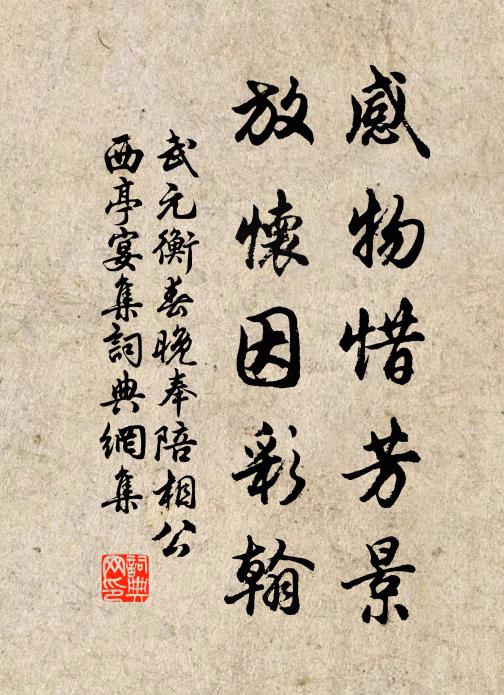 感物惜芳景
放懷因彩翰
武元衡春晚奉陪相公
西亭宴集詞典網集
詞典網印